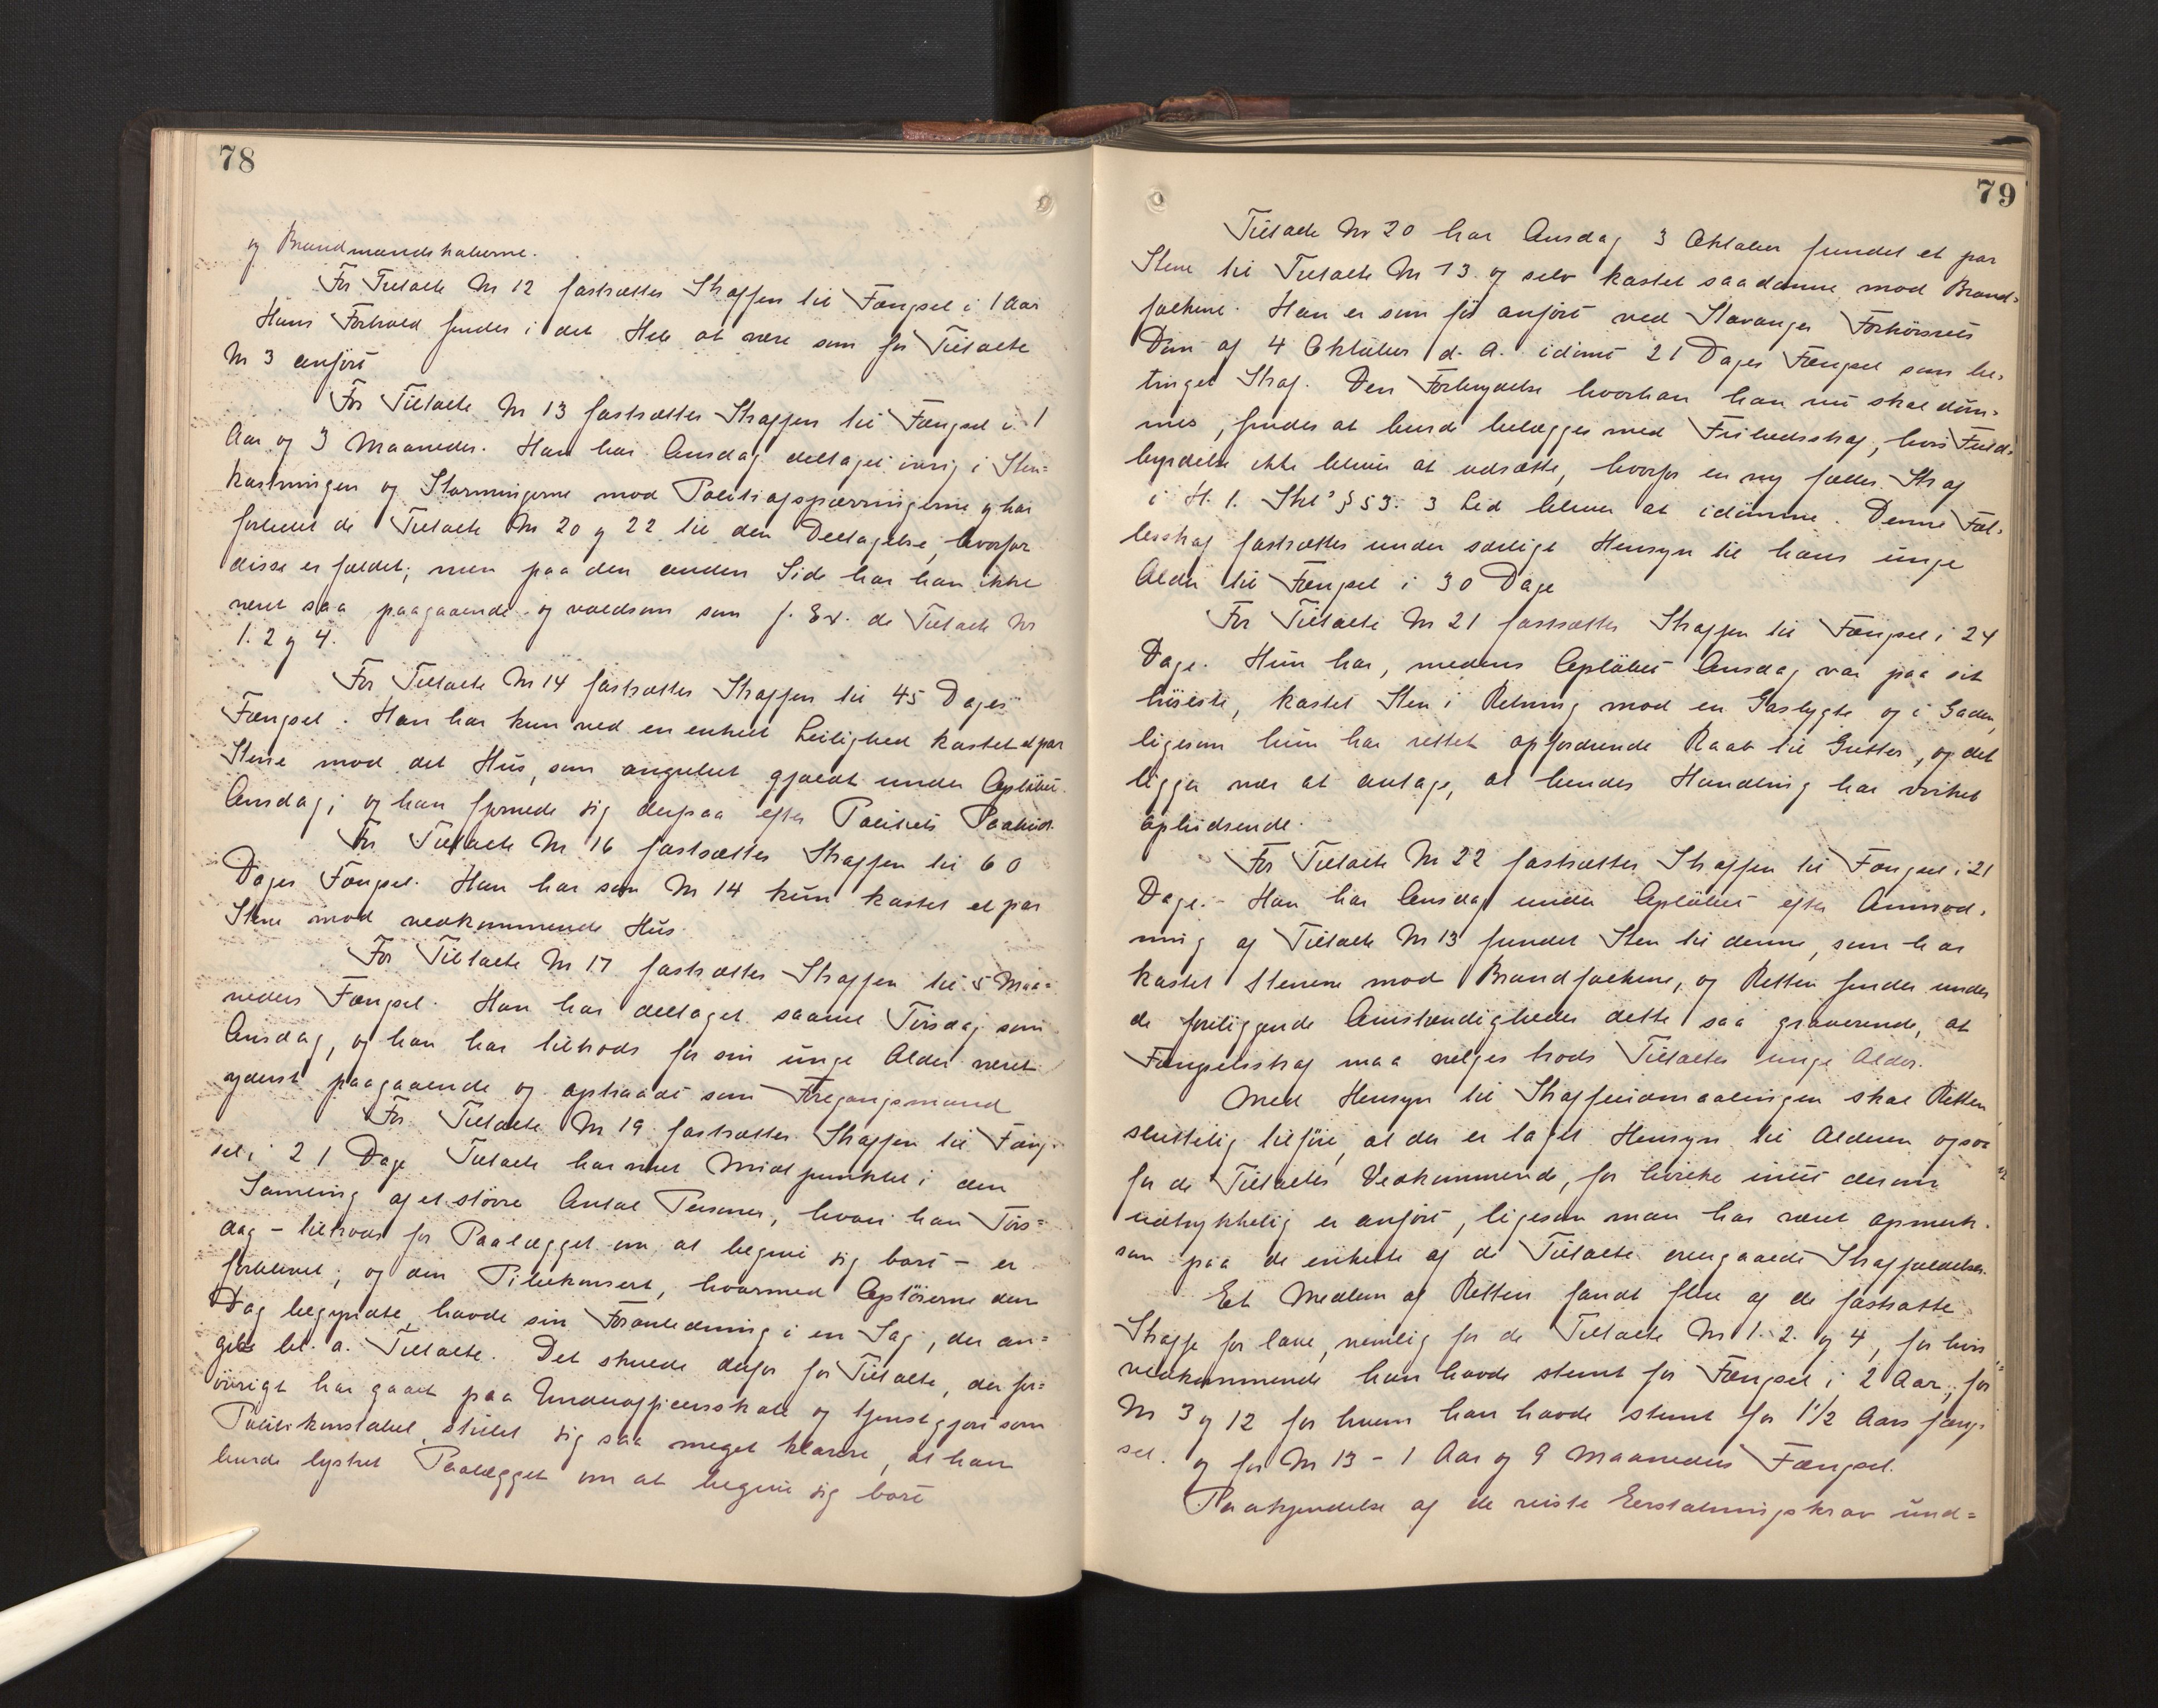 78
og Brandmandskaberne.
For Tiltalte Nr 12 fastsættes Straffen til Fængsel i 1 Aar
Hans Forhold findes i det Hele at være som for Tiltalte
Nr 3 anført
For Tiltalte Nr 13 fastsættes Straffen til Fængsel i 1
Aar og 3 Maaneder. Han har Onsdag deltaget ivrig i Sten-
kastningen og Stormningerne mod Politiafspærringerne og har
forledet de Tiltalte Nr 20 og 22 til den Deltagelse, hvorfor
disse er fældet; men paa den anden Side har han ikke
været saa paagaaende og voldsom som f. Ex. de Tiltalte Nr
1. 2 og 4.
For Tiltalte Nr 14 fastsættes Straffen til 45 Dages
Fængsel. Han har kun ved en enkelt Leilighed kastet et par
Stene mod det Hus, som angrebet gjældt under Opløbet
Onsdag; og han fjernede sig derpaa efter Politiets Paabud.
For Tiltalte Nr 16 fastsættes Straffen til 60
Dages Fængsel. Han har som Nr 14 kun kastet et par
Stene mod vedkommende Hus.
For Tiltalte Nr 17 fastsættes Straffen til 5 Maa-
neders Fængsel. Han har deltaget saavel Tirsdag som
Onsdag, og han har tiltrods for sin unge Alder været
yderst paagaaende og optraadt som Foregangsmand
For Tiltalte Nr 19 fastsættes Straffen til Fæng-
sel i 21 Dage. Tiltalte har været Midtpunktet i den
Samling af et större Antal Personer, hvori han Tirs-
dag - tiltrods for Paalægget om at begive sig bort - er
forblevet; og den Pibekonsert, hvormed Optöierne den
Dag begyndte, havde sin Foranledning i en Sag, der an-
gik bl. a. Tiltalte. Det skulde derfor for Tiltalte, der for-
övrigt har gaaet paa Underofficersskole og tjenstgjort som
Politikonstabel, stillet sig saa meget klarere, at han
burde lystret Paalægget om at begive sig bort
79
Tiltalte Nr 20 har Onsdag 3 Oktober fundet et par
Stene til Tiltalte Nr 13 og selv kastet saadanne mod Brand-
folkene. Han er som før anført ved Stavanger Forhörsrets
Dom af 4 Oktober d. A. idömt 21 Dages Fængsel som be-
tinget Straf. Den Forbrydelse hvorhan han nu skal döm-
mes, findes at burde belægges med Frihedsstraf, hvis Fuld-
byrdelse ikke bliver at udsætte, hvorfor en ny fælles Straf
i H. t. Strl's § 53. 3 Led bliver at idömme. Denne Fæl-
lesstraf fastsættes under særligt Hensyn til hans unge
Alder til Fængsel i 30 Dage
For Tiltalte Nr 21 fastsættes Straffen til Fængsel i 24
Dage. Hun har, medens Opløbet Onsdag var paa sit
höieste, kastet Sten i Retning mod en Gaslygte og i Gaden,
ligesom hun har rettet opfordrende Raab til Gutter, og det
ligger nær at antage, at hendes Handling har virket
ophidsende.
For Tiltalte Nr 22 fastsættes Straffen til Fængsel i 21
Dage. - Han har Onsdag under Opløbet efter Anmod-
ning af Tiltalte Nr 13 fundet Sten til denne, som har
kastet Stenene mod Brandfolkene, og Retten finder under
de foreliggende Omstændigheder dette saa graverende, at
Fængselsstraf maa vælges trods Tiltaltes unge Alder.
Med Hensyn til Straffeudmaalingen skal Retten
sluttelig tilföie, at der er taget Hensyn til Alderen ogsaa
for de Tiltaltes Vedkommende, for hvilke intet derom
udtrykkelig er anfört, ligesom man har været opmerk-
som paa de enkelte af de Tiltalte overgaaede Straffældelser.
Et Medlem af Retten fandt flere af de fastsatte
Straffe for lave, nemlig for de Tiltalte Nr 1. 2. og 4, for hvis
vedkommende han havde stemt for Fængsel i 2 Aar; for
Nr 3 og 12 for hvem han havde stemt for 1½ Aars fæng-
sel. og for Nr 13 - 1 Aar og 9 Maaneders Fængsel.
Paakjendelse af de reiste Erstatningskrav und-